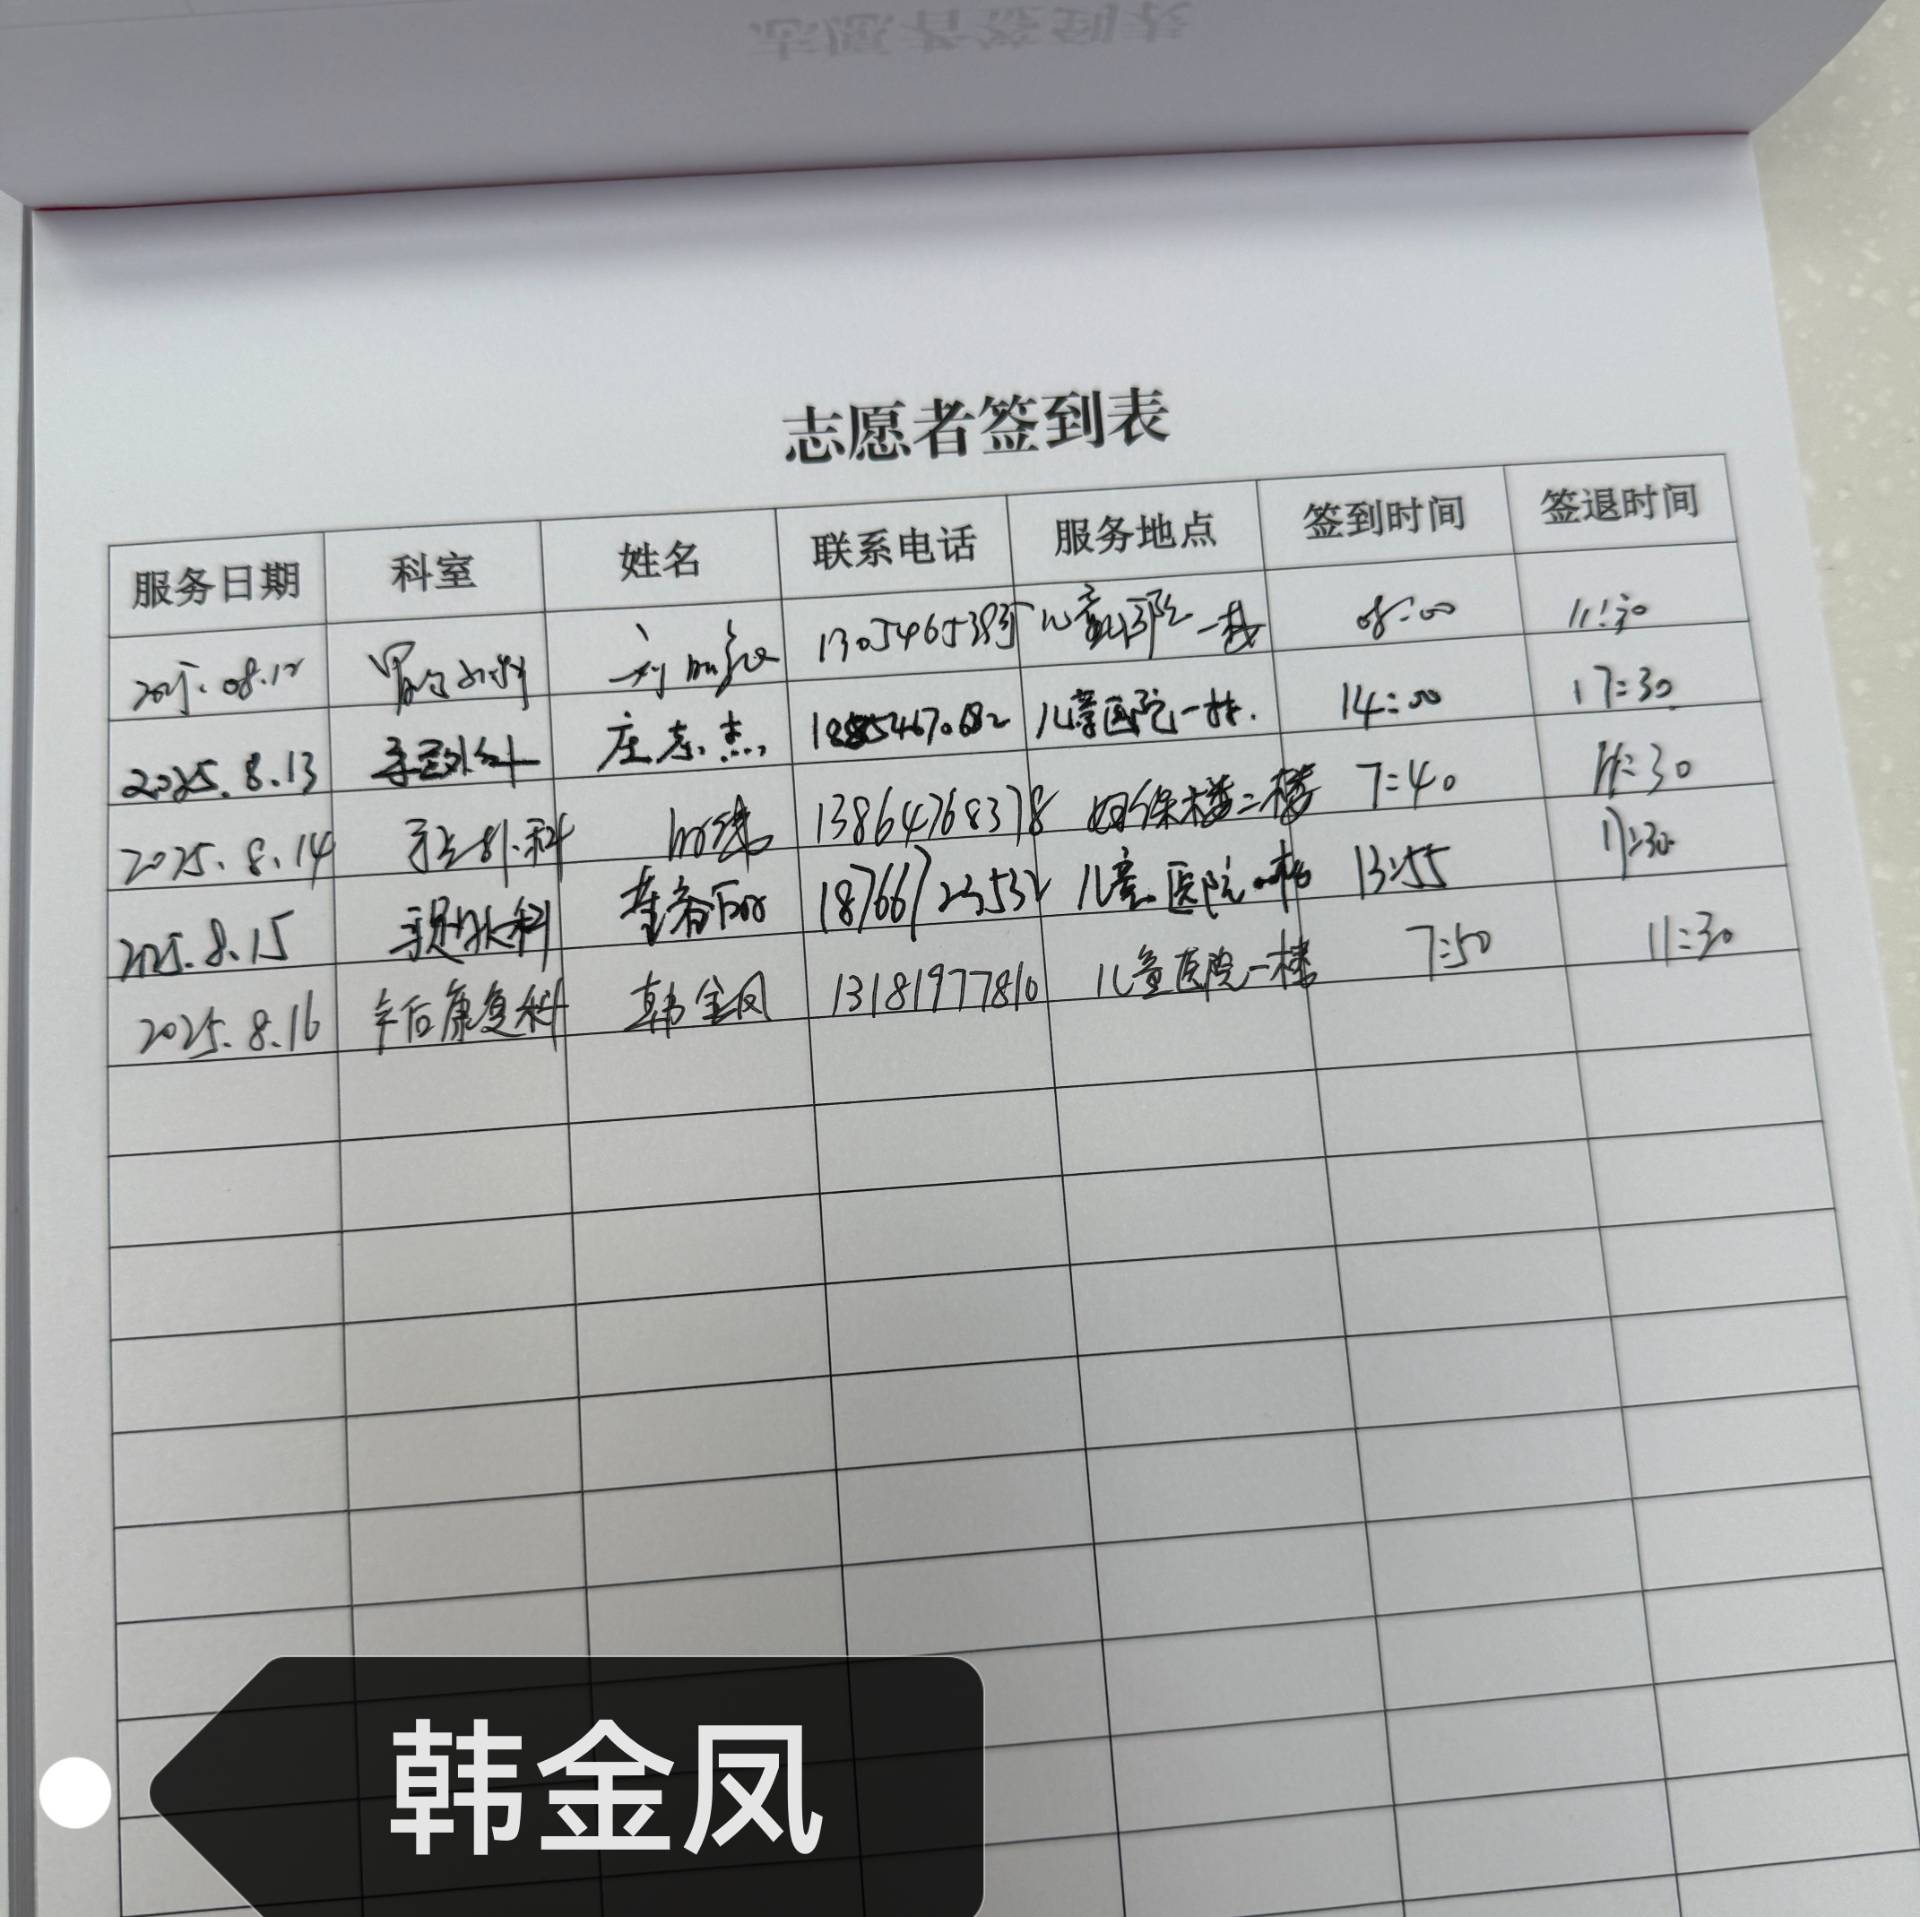 志愿者签到表
服务日期 科室 姓名 联系电话 服务地点 签到时间 签退时间
2025.08.12 儿童医院一楼 08:00 11:30
2025.8.13 庄志杰 儿童医院一楼. 14:00 17:30
2025.8.14 外科 13864768378 妇保楼二楼 7:40 11:30
2025.8.15 外科 18766723532 儿童医院一楼 13:55 17:30
2025.8.16 产后康复科 韩金凤 13181977810 儿童医院一楼 7:50 11:30
韩金凤